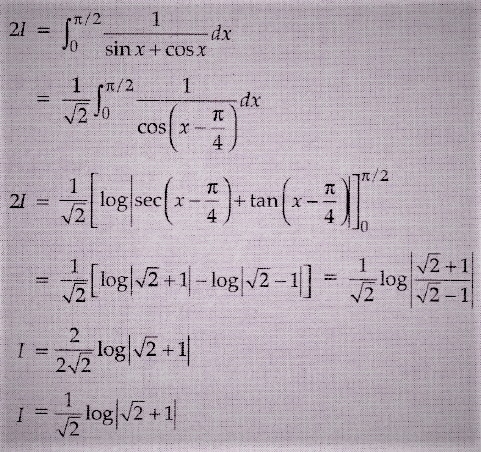 2I = ∫₀^{π/2} 1/(sin x + cos x) dx
= 1/√2 ∫₀^{π/2} 1/cos(x − π/4) dx
2I = 1/√2 [log|sec(x − π/4) + tan(x − π/4)|]₀^{π/2}
= 1/√2 [log|√2 + 1| − log|√2 − 1|] = 1/√2 log|(√2 + 1)/(√2 − 1)|
I = 2/(2√2) log|√2 + 1|
I = 1/√2 log|√2 + 1|